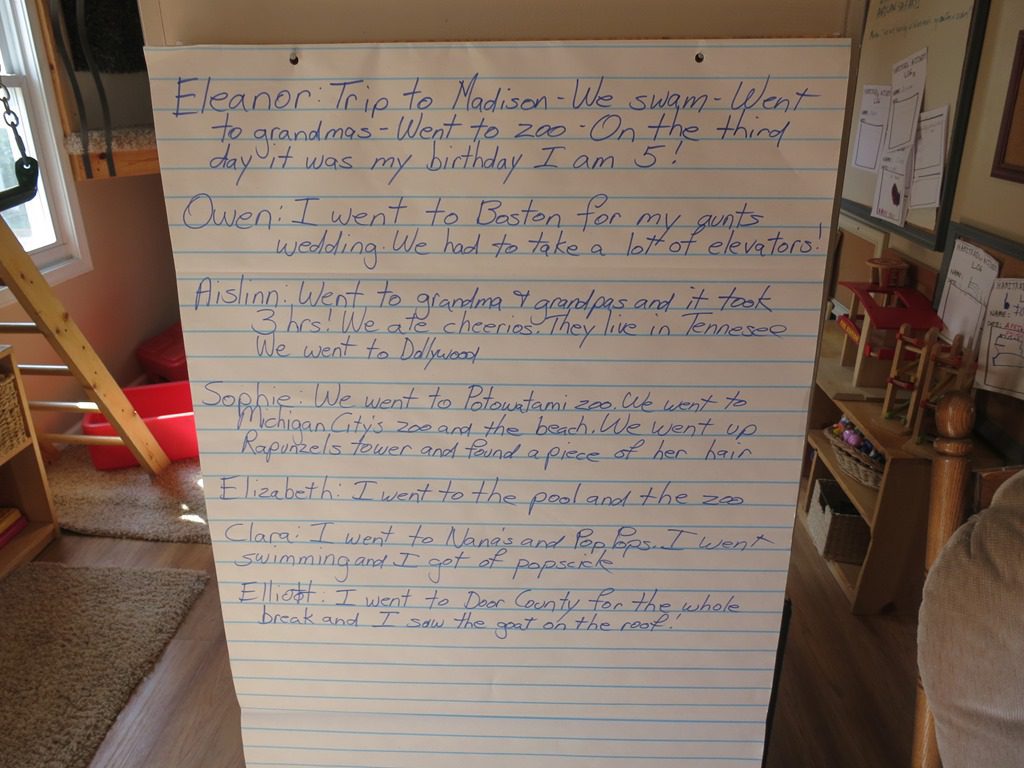 Eleanor: Trip to Madison - We swam - Went
to grandmas - Went to zoo - On the third
day it was my birthday I am 5!
Owen: I went to Boston for my aunts
wedding. We had to take a lot of elevators!
Aislinn: Went to grandma & grandpas and it took
3 hrs! We ate cheerios. They live in Tennesee
We went to Dollywood
Sophie: We went to Potowatami zoo. We went to
Michigan City's zoo and the beach. We went up
Rapunzels tower and found a piece of her hair
Elizabeth: I went to the pool and the zoo
Clara: I went to Nana's and Pop Pops. I went
swimming and I got of popsicle
Elliott: I went to Door County for the whole
break and I saw the goat on the roof!